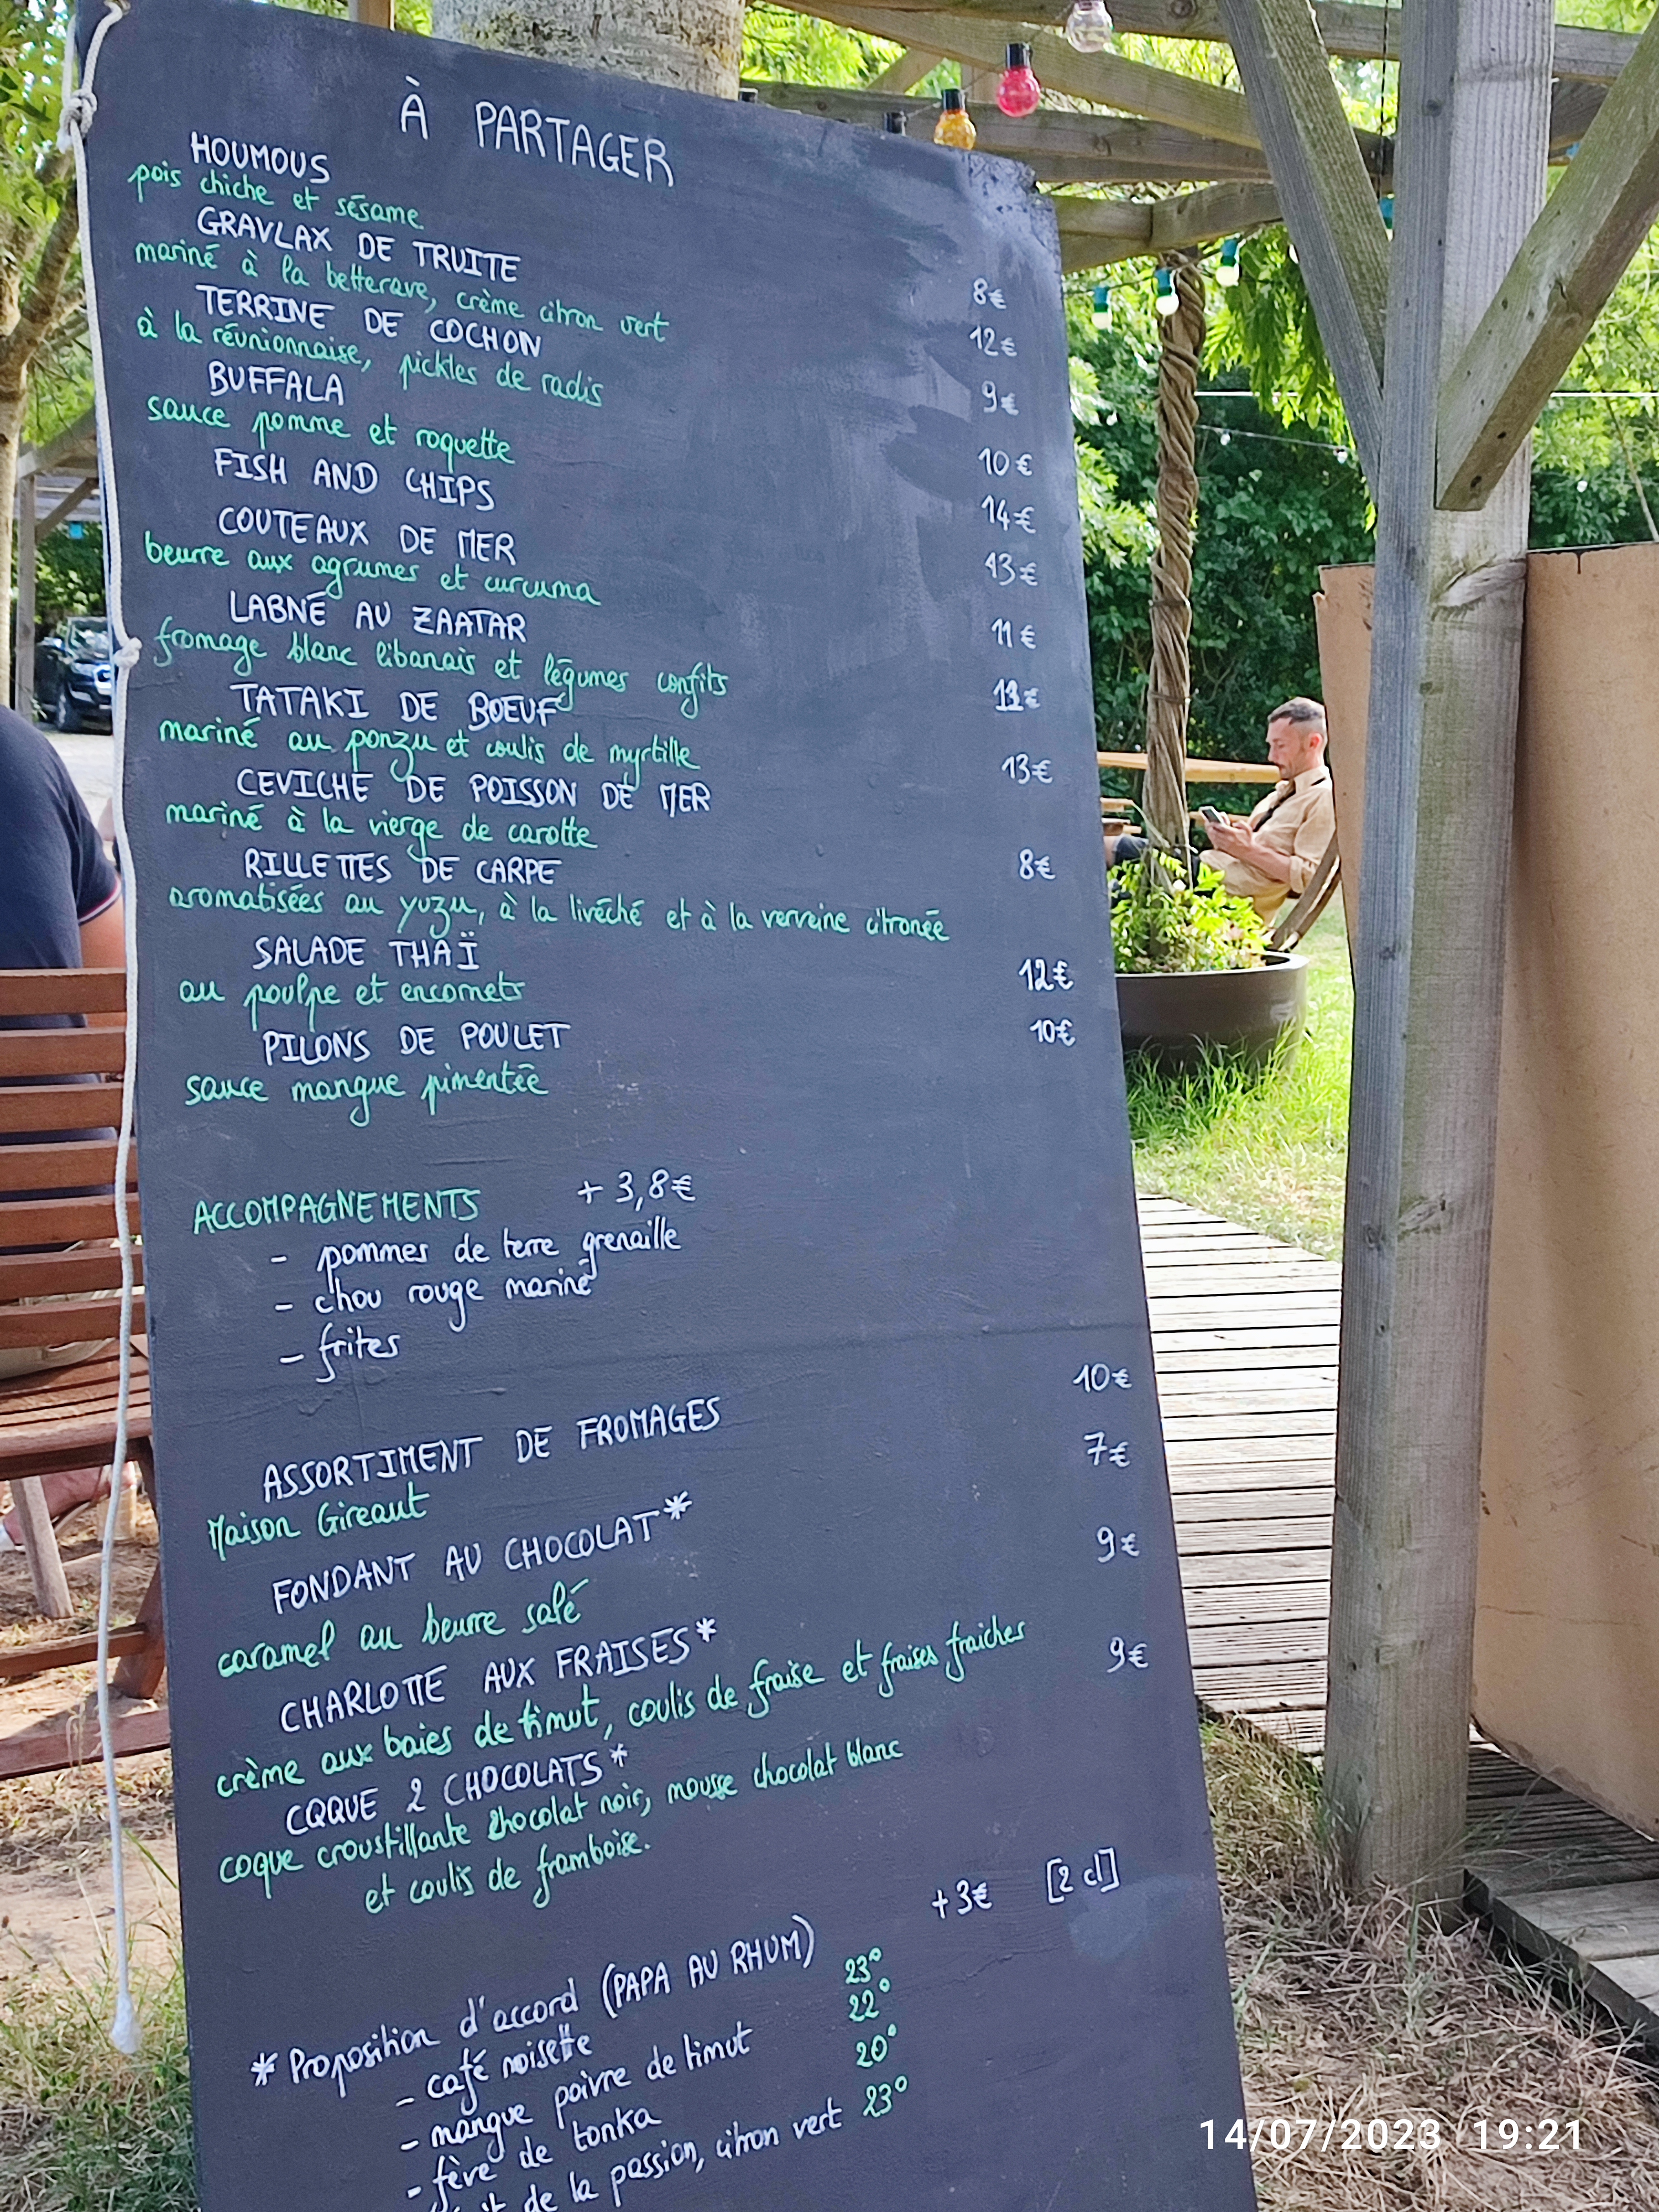 À PARTAGER
HOUMOUS
pois chiche et sésame 8€
GRAVLAX DE TRUITE
mariné à la betterave, crème citron vert 12€
TERRINE DE COCHON
à la réunionnaise, pickles de radis 9€
BUFFALA
sauce pomme et roquette 10€
FISH AND CHIPS 14€
COUTEAUX DE MER 13€
beurre aux agrumes et curcuma
LABNÉ AU ZAATAR 11€
fromage blanc libanais et légumes confits
TATAKI DE BOEUF
mariné au ponzu et coulis de myrtille
CEVICHE DE POISSON DE MER 13€
mariné à la vierge de carotte
RILLETTES DE CARPE 8€
aromatisées au yuzu, à la livéché et à la verveine citronée
SALADE THAÏ 12€
au poulpe et encornets
PILONS DE POULET 10€
sauce mangue pimentée
ACCOMPAGNEMENTS + 3,8€
- pommes de terre grenaille
- chou rouge mariné
- frites
ASSORTIMENT DE FROMAGES 10€
Maison Gireaut
FONDANT AU CHOCOLAT* 7€
caramel au beurre salé
CHARLOTTE AUX FRAISES* 9€
crème aux baies de timut, coulis de fraise et fraises fraiches
COQUE 2 CHOCOLATS* 9€
coque croustillante chocolat noir, mousse chocolat blanc
et coulis de framboise.
* Proposition d'accord (PAPA AU RHUM) +3€ [2 cl]
- café noisette 23°
- mangue poivre de timut 22°
- fève de tonka 20°
de la passion, citron vert 23°
14/07/2023 19:21